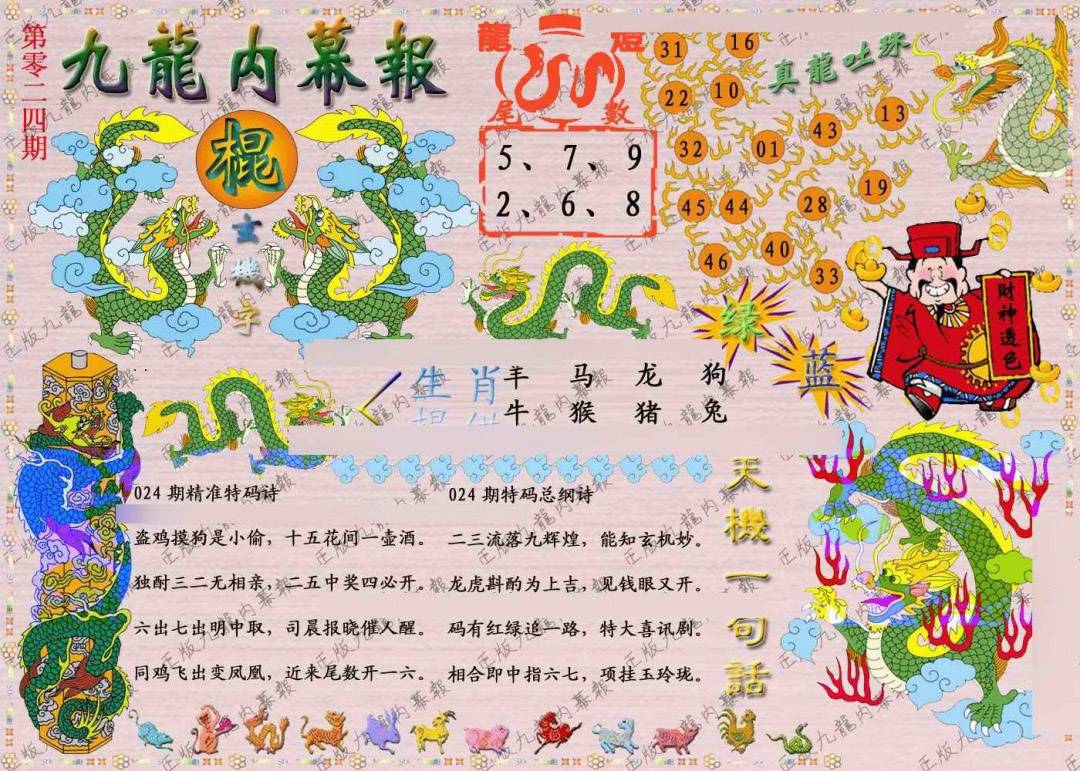 第零二四期
九龍内幕報
棍
玄機字
龍 燈
尾 數
5、7、9
2、6、8
真龍吐珠
31
16
22
10
13
43
32
01
19
45
44
28
46
40
33
绿
蓝
財神透色
生肖
羊 马 龙 狗
牛 猴 猪 兔
024 期精准特码诗
盗鸡摸狗是小偷，十五花间一壶酒。
独酌三二无相亲，二五中奖四必开。
六出七出明中取，司晨报晓催人醒。
同鸡飞出变凤凰，近来尾数开一六。
024 期特码总纲诗
二三流落九辉煌，能知玄机妙。
龙虎斟酌为上吉，见钱眼又开。
码有红绿追一路，特大喜讯剧。
相合即中指六七，项挂玉玲珑。
天機一句話
正版九龍内幕報